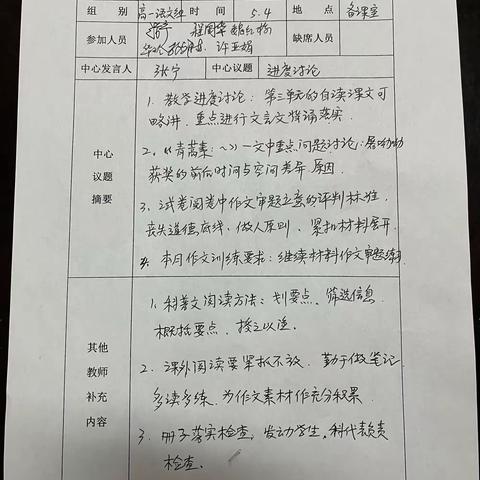 组 别 高一语文组 时 间 5.4 地 点 备课室
参加人员 程国华 许亚娟 缺席人员
中心发言人 张宁 中心议题 进度讨论
中心议题摘要
1. 教学进度讨论：第三单元的自读课文可
略讲．重点进行文言文背诵落实．
2.《青蒿素：～》一文中重点问题讨论：屠呦呦
获奖的前后时间与空间差异原因．
3. 试卷阅卷中作文审题立意的评判标准．
丧失道德底线、做人原则、紧扣材料展开．
4. 本月作文训练要求：继续材料作文审题练习
其他教师补充内容
1. 科普文阅读方法：划要点、筛选信息、
概括要点．
2. 课外阅读要紧抓不放．勤于做笔记
多读多练．为作文素材作充分积累．
3. 册子落实检查，发动学生，科代表负责
检查．